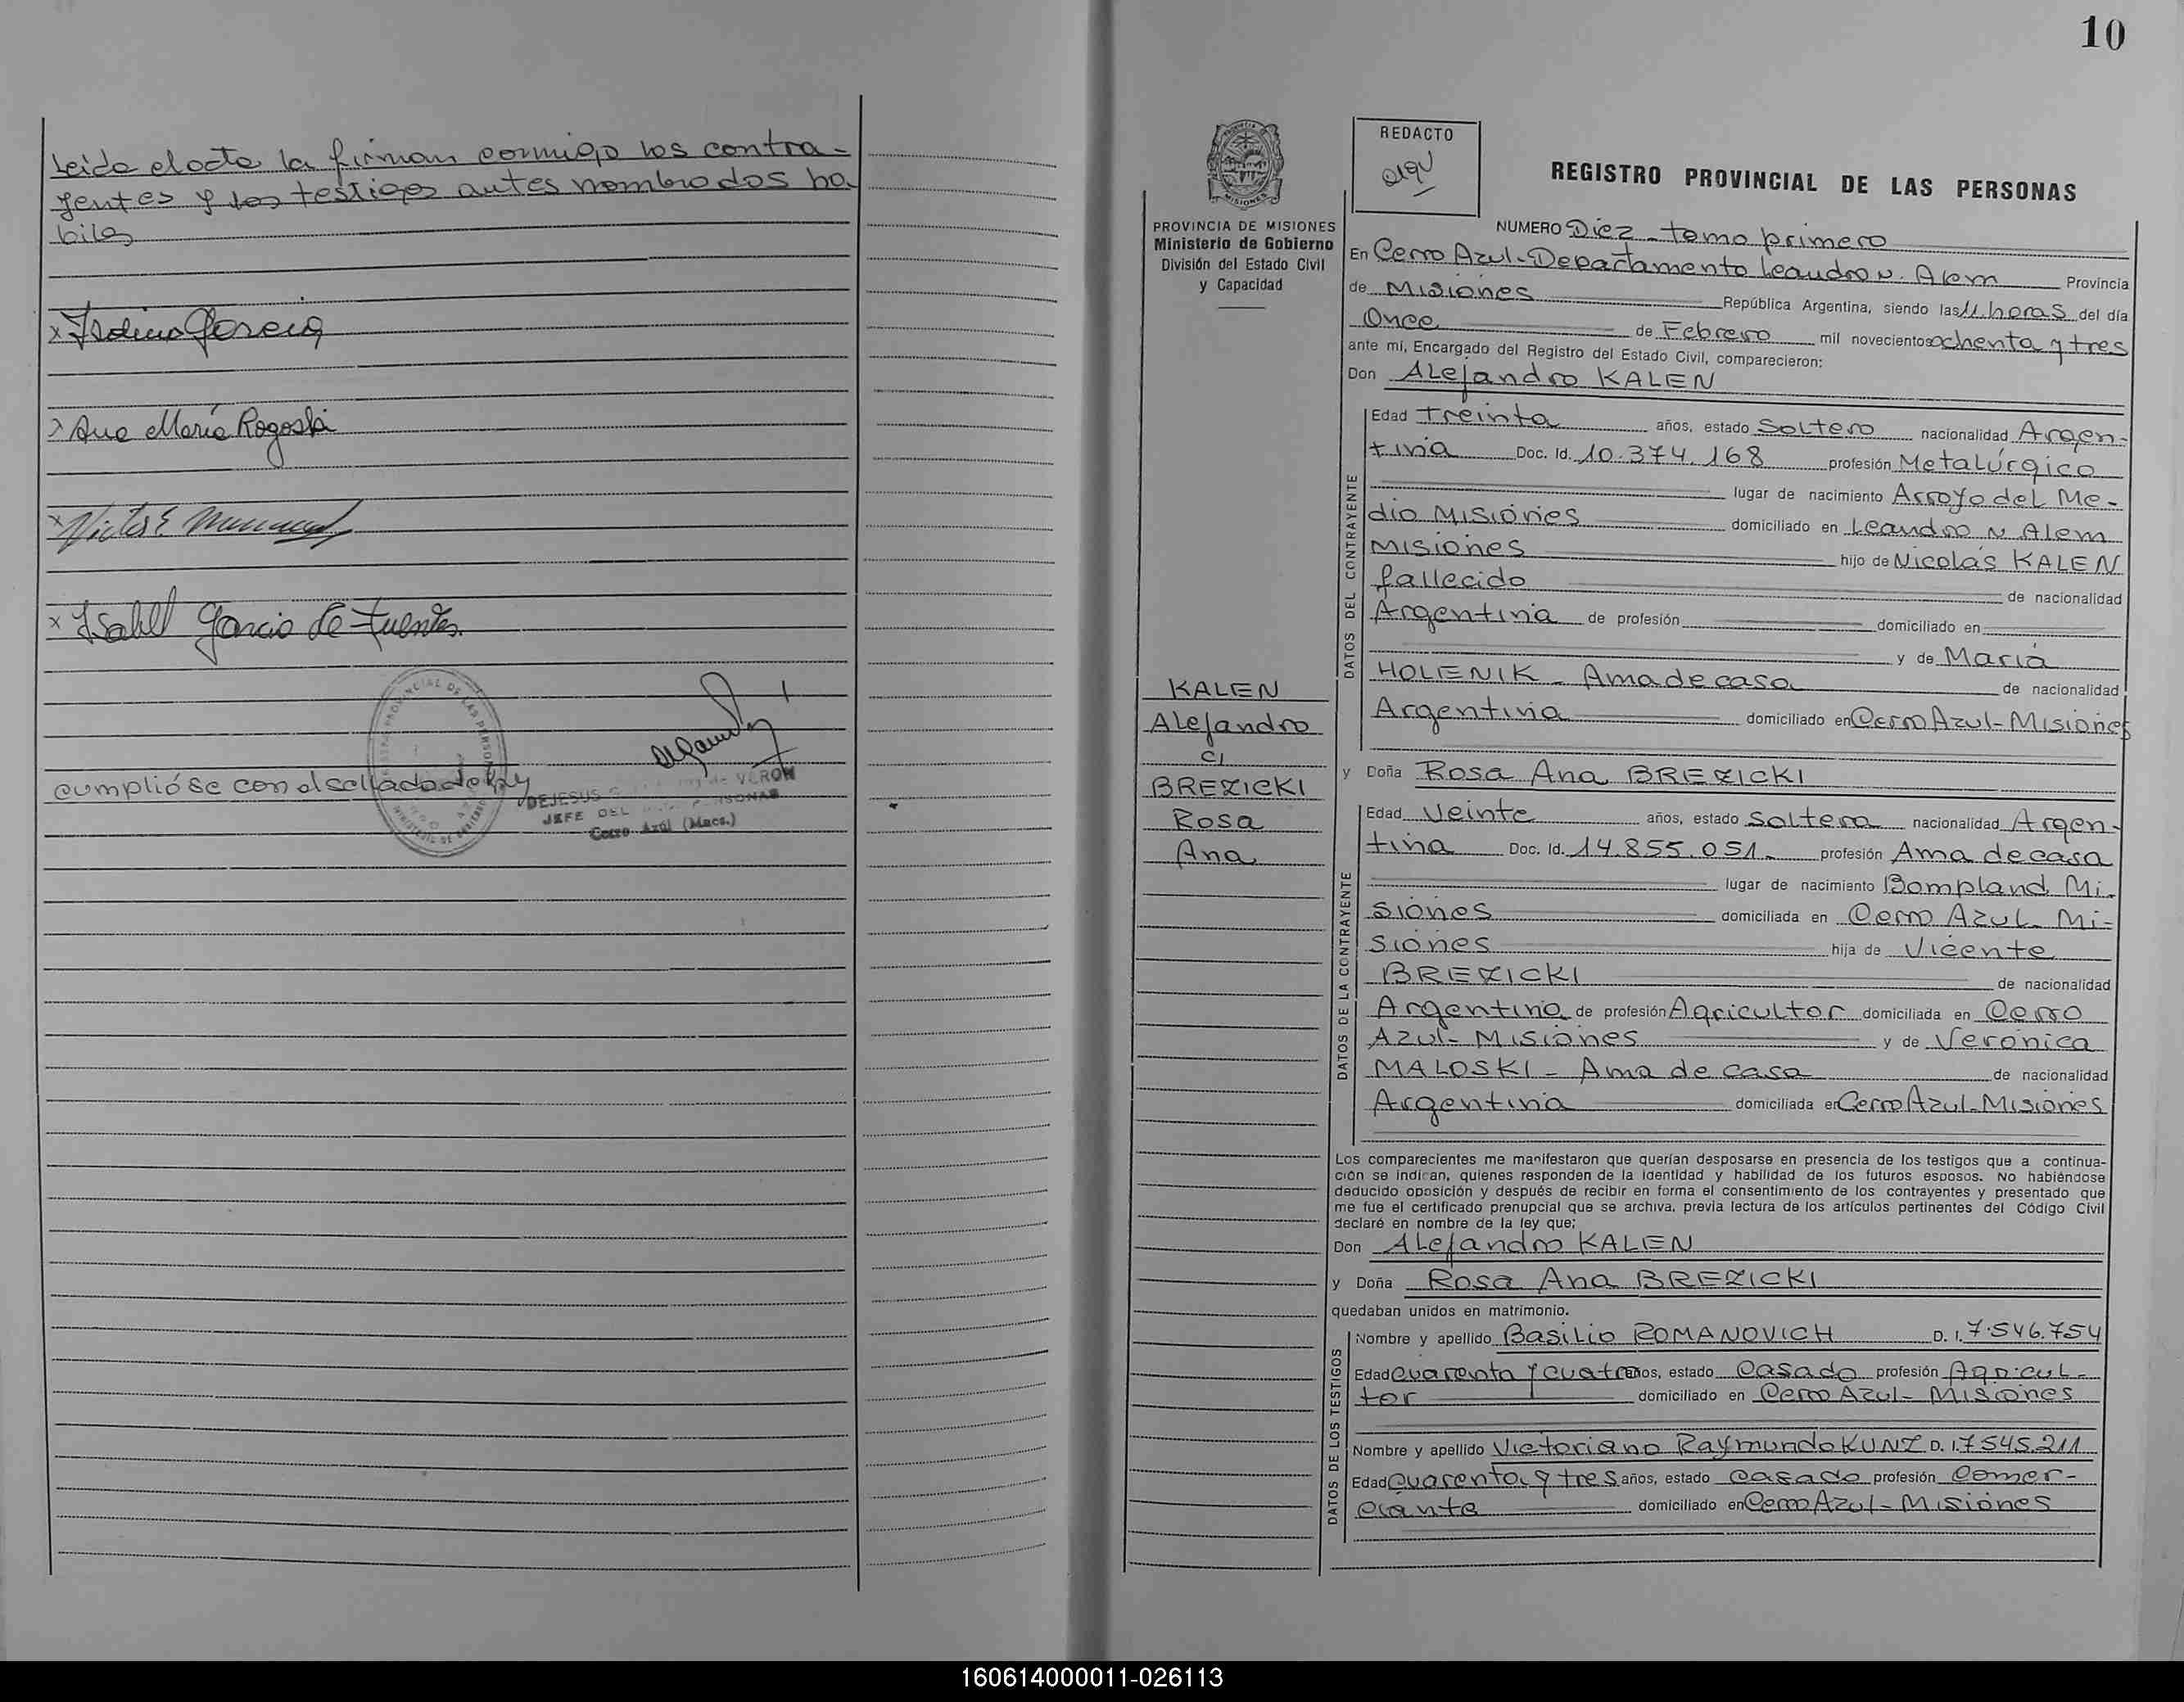 Leida el acta la firman conmigo los contra-
yentes y los testigos antes nombrados ha
biles
x Isolino Garcia
x Ana María Rogoski
x Victor E
x Isabel Garcia de Fuentes.
cumplióse con el sellado de ley
DEJESUS de VERON
JEFE DEL PERSONAS
Cerro Azul (Mnes.)
10
REDACTO
PROVINCIA DE MISIONES
Ministerio de Gobierno
División del Estado Civil
y Capacidad
REGISTRO PROVINCIAL DE LAS PERSONAS
NUMERO Diez - tomo primero
En Cerro Azul - Departamento Leandro N. Alem Provincia
de Misiones República Argentina, siendo las 11 horas del día
Once de Febrero mil novecientos ochenta y tres
ante mí, Encargado del Registro del Estado Civil, comparecieron:
Don Alejandro KALEN
DATOS DEL CONTRAYENTE
Edad Treinta años, estado Soltero nacionalidad Argen-
tina Doc. Id. 10.374.168 profesión Metalúrgico
lugar de nacimiento Arroyo del Me-
dio Misiones domiciliado en Leandro N Alem
Misiones hijo de Nicolás KALEN
fallecido de nacionalidad
Argentina de profesión domiciliado en
y de María
HOLENIK - Ama de casa de nacionalidad
Argentina domiciliado en Cerro Azul - Misiones
KALEN
Alejandro
c/
BREZICKI
Rosa
Ana
y Doña Rosa Ana BREZICKI
DATOS DE LA CONTRAYENTE
Edad Veinte años, estado Soltera nacionalidad Argen-
tina Doc. Id. 14.855.051.- profesión Ama de casa
lugar de nacimiento Bompland. Mi-
siones domiciliada en Cerro Azul - Mi-
siones hija de Vicente
BREZICKI de nacionalidad
Argentina de profesión Agricultor domiciliada en Cerro
Azul - Misiones y de Verónica
MALOSKI - Ama de casa de nacionalidad
Argentina domiciliada en Cerro Azul - Misiones
Los comparecientes me manifestaron que querían desposarse en presencia de los testigos que a continua-
ción se indican, quienes responden de la identidad y habilidad de los futuros esposos. No habiéndose
deducido oposición y después de recibir en forma el consentimiento de los contrayentes y presentado que
me fue el certificado prenupcial que se archiva, previa lectura de los artículos pertinentes del Código Civil
declaré en nombre de la ley que;
Don Alejandro KALEN
y Doña Rosa Ana BREZICKI
quedaban unidos en matrimonio.
DATOS DE LOS TESTIGOS
Nombre y apellido Basilio ROMANOVICH D. I. 7.546.754
Edad cuarenta y cuatro años, estado Casado profesión Agricul-
tor domiciliado en Cerro Azul - Misiones
Nombre y apellido Victoriano Raymundo KUNZ D. I. 7545.211
Edad Cuarenta y tres años, estado casado profesión Comer-
ciante domiciliado en Cerro Azul - Misiones
160614000011-026113